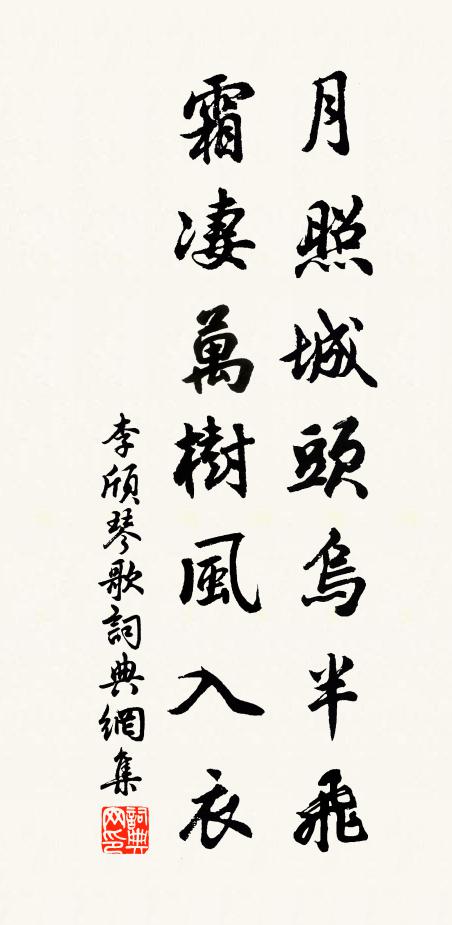 月照城頭烏半飛
霜凄萬樹風入衣
李頎琴歌詞典網集
詞典網印